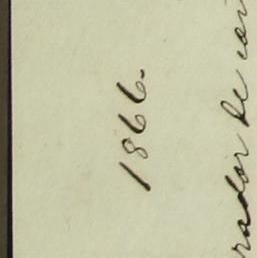 1866.
rador de con